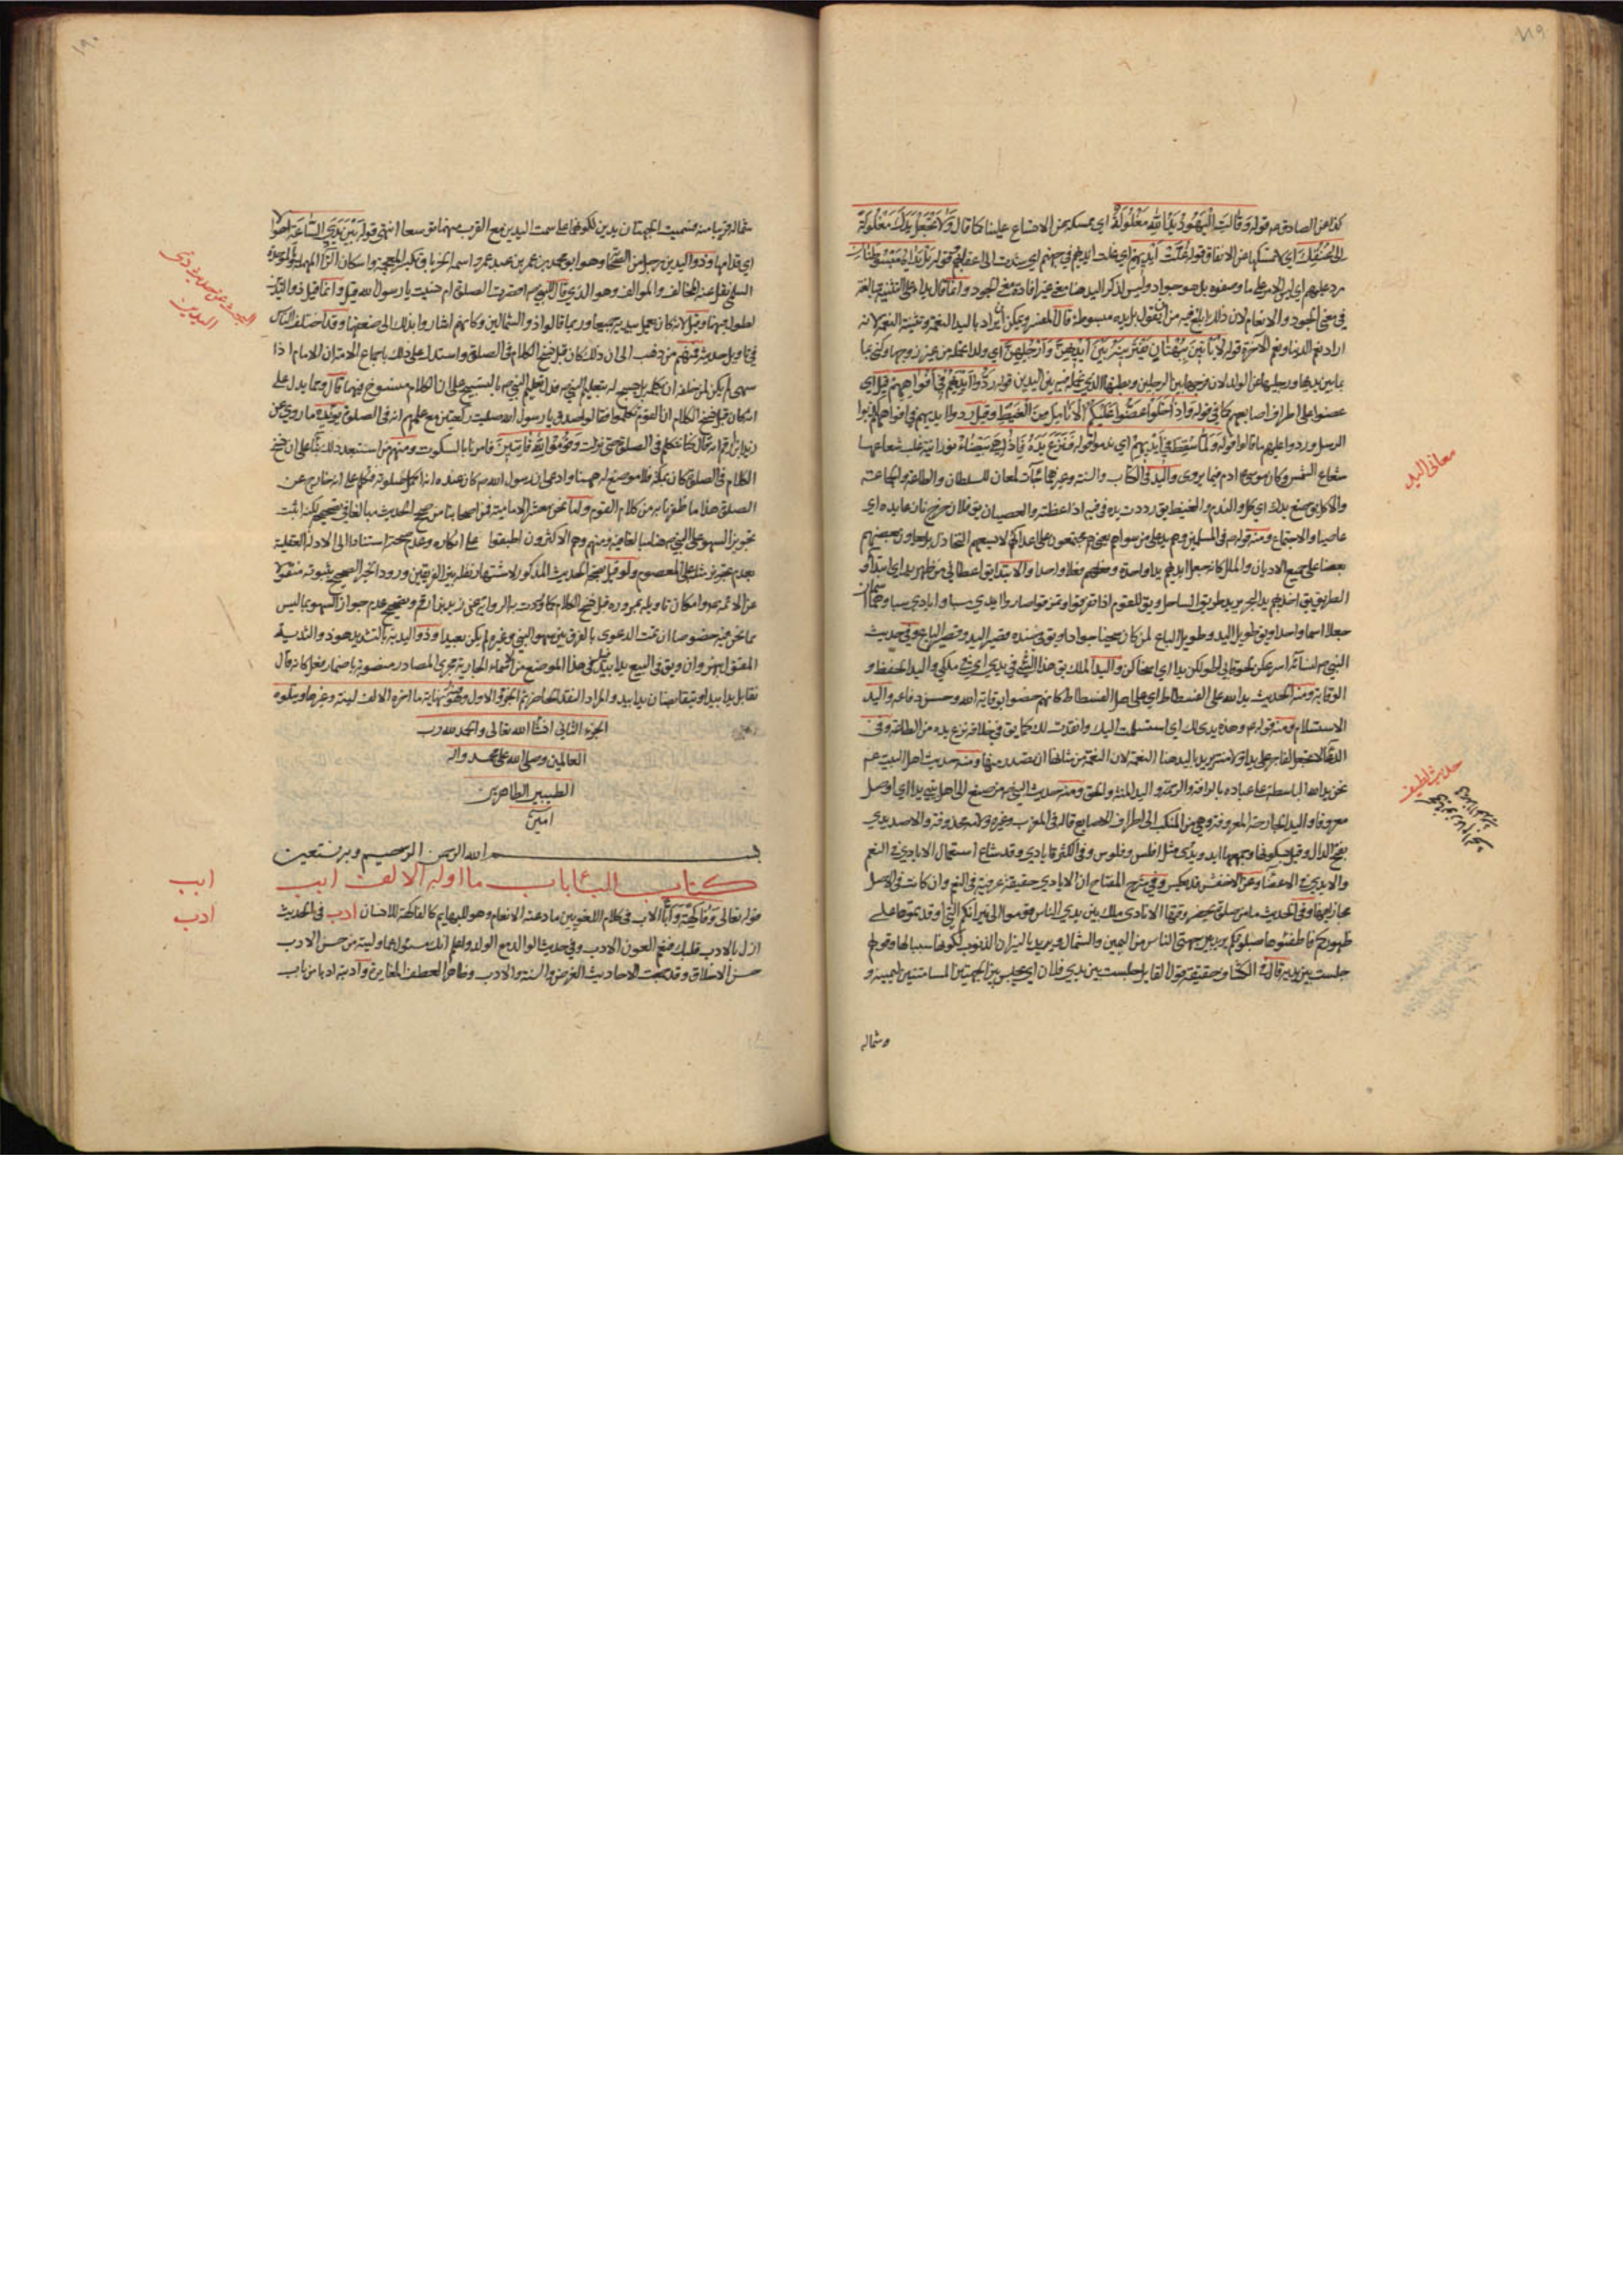 ١٨٩
كذا عن الصادق م قوله وَقَالَتِ الْيَهُودُ يَدُ اللهِ مَغْلُولَةٌ اي ممسكة عن الاتساع علينا كما قال وَلَا تَجْعَلْ يَدَكَ مَغْلُولَةً
اِلى عُنُقِكَ اي لا تمسكها عن الانفاق قوله غُلَّتْ اَيْدِيهِمْ اي غلت ايديهم في جهنم اي شدت الى اعناقهم قوله بَلْ يَدَاهُ مَبْسُوطَتَانِ
رد عليهم اي ليس الامر على ما وصفوه بل هو جواد وليس لذكر اليد هنا معنى غير افادة معنى الجود وانما قال يداه على التثنية مبالغة
في معنى الجود والانعام لان ذلك ابلغ فيه من ان يقول بل يده مبسوطة قال المفسر ويمكن ان يراد باليد النعمة وتثنية النعمة لانه
اراد نعم الدنيا ونعم الآخرة قوله لَا يَأْتِينَ بِبُهْتَانٍ يَفْتَرِينَهُ بَيْنَ اَيْدِيهِنَّ وَاَرْجُلِهِنَّ اي ولدا تحمله من غير زوجها وكنى بما
بين يديها ورجليها عن الولد لان فرجها بين الرجلين وبطنها الذي تحمله فيه بين اليدين قوله رَدُّوا اَيْدِيَهُمْ فِي اَفْوَاهِهِمْ قيل اي
عضوا على اطراف اصابعهم كما في قوله وَاِذَا خَلَوْا عَضُّوا عَلَيْكُمُ الْاَنَامِلَ مِنَ الْغَيْظِ وقيل ردوا ايديهم في افواههم
الرسل وردوا عليهم ما قالوا قوله وَلَمَّا سُقِطَ فِي اَيْدِيهِمْ اي ندموا قوله فَنَزَعَ يَدَهُ فَاِذَا هِيَ بَيْضَاءُ نورانية غلب شعاعها
شعاع الشمس وكان موسى ع ادم فيما يروى واليد في الكتاب والسنة وغيرهما جاءت لمعان للسلطان والطاعة والجماعة
والاكل يق ضع يدك اي كل والندم والغيظ يق رددت يده في فيه اذا غظته والعصيان يق فلان خرج نازعا يده اي
عاصيا والاجتماع ومنه قوله ص في المسلمين وهم يد على من سواهم يعني هم مجتمعون على اعدائهم لا يسعهم التخاذل بل يعاون بعضهم
بعضا على جميع الاديان والملل كانه جعل ايديهم يدا واحدة وفعلهم فعلا واحدا والابتداء يق اعطاني من ظهر يد اي ابتداء و
الطريق يق اخذ بهم يد البحر يريد طريق الساحل ويق للقوم اذا تفرقوا وتمزقوا صاروا ايدي سبا وايادي سبا وهما
جعلا اسما واحدا ويق طويل اليد وطويل الباع لمن كان سخيا جوادا ويق في ضده قصير اليد وقصير الباع وفي حديث
النبي ص لنسائه اسرعكن لحوقا بي اطولكن يدا اي اسخاكن واليد الملك يق هذا الشئ في يدي اي في ملكي واليد الحفظ و
الوقاية ومنه الحديث يد الله على الفسطاط اي على اهل الفسطاط كانهم خصوا بوقاية الله وحسن دفاعه واليد
الاستسلام ومنه قوله ع وهذه يدي لك اي استسلمت اليك وانقدت لك كما يق في خلافه نزع يده من الطاعة وفي
الدعاء لا تجعل لفاجر علي يدا ولا منة يريد باليد هنا النعمة لان النعمة من شانها ان تصدر منها ومنه حديث اهل البيت ع
نحن يد الله الباسطة على عباده بالرافة والرحمة واليد المنة والحق ومنه حديث النبي ص من صنع الى اهل بيتي يدا اي اوصل
معروفا واليد الجارحة المعروفة وهي من المنكب الى اطراف الاصابع قاله في المغرب وغيره ولامه محذوفة والاصل يدي
بفتح الدال وقيل بسكونها وجمعها ايد ويدي مثل افلس وفلوس وفي الكثرة ايادي وقد شاع استعمال الايادي في النعم
والايدي في الاعضاء وعن الاخفش قد يعكس وفي شرح المفتاح ان الايادي حقيقة عرفية في النعم وان كانت في الاصل
مجازا فيها وفي الحديث ما من صلوة يحضر وقتها الا نادى ملك بين يدي الناس قوموا الى نيرانكم التي اوقدتموها على
ظهوركم فاطفئوها بصلوتكم يريد بين جهتي الناس من اليمين والشمال ويريد بالنيران الذنوب لكونها سببا لها وقولهم
جلست بين يديه قال في الكشاف حقيقة قول القايل جلست بين يدي فلان اي يجلس بين الجهتين المسامتتين ليمينه و
وشماله
معانى اليد
حديث لطيف
١٩٠
شماله قريبا منه فسميت الجهتان يدين لكونهما على سمت اليدين مع القرب منهما توسعا انتهى قوله بَيْنَ يَدَيِ السَّاعَةِ
اي قدامها وذو اليدين رجل من الصحابة وهو ابو محمد بن عمر بن عبد عمرو اسمه الخرباق بكسر المعجمة واسكان الراء المهملة والموحدة
السلمي نقل عنه المخالف والموالف وهو الذي قال للنبي ص اقصرت الصلوة ام نسيت يا رسول الله قيل وانما قيل ذو اليدين
لطول فيهما وقيل لانه كان يعمل بيديه جميعا وربما قالوا ذو الشمالين وكانهم اشاروا بذلك الى ضعفهما وقد اختلف الناس
في تاويل حديثه فمنهم من ذهب الى ان ذلك كان قبل فسخ الكلام في الصلوة واستدل على ذلك باجماع الامة ان الامام اذا
سهى لم يكن لمن خلفه ان يكلمه بل يسبح له بتعليم النبي ص فدل تعليم النبي ص بالتسبيح على ان الكلام منسوخ فيها قال ومما يدل على
انه كان قبل نسخ الكلام ان القوم تكلموا فقالوا صدق يا رسول الله صليت ركعتين مع علمهم انه في الصلوة يؤيده ما روي عن
زيد بن ارقم انه قال كنا نتكلم في الصلوة حتى نزلت وَقُومُوا لِلّهِ قَانِتِينَ فامرنا بالسكوت ومنهم من استبعد ذلك بناء على ان نسخ
الكلام في الصلوة كان بمكة
الصلوة هذا ما ظفرنا به من كلام القوم واما نحن معشر الامامية فمن اصحابنا من صحح الحديث مبالغا في تصحيحه لكنه اثبت
تجويز السهو على النبي ص ومنهم وهم الاكثرون اطبقوا على انكاره وعدم صحته استنادا الى الادلة العقلية
بعدم تجويز مثله على المعصوم ولو قيل بصحة الحديث المذكور لاشتهار نقله بين الفريقين وورود الخبر الصحيح بثبوته منقولا
عن الائمة ع وامكان تاويله بوروده قبل نسخ الكلام كما وردت به الرواية عن زيد بن ارقم وتصحيح عدم جواز السهو بما ليس
مما نحن فيه خصوصا ان تمت الدعوى بالفرق بين سهو النبي وغيره لم يكن بعيدا وذو اليدية بالتشديد هو ذو الثدية
المقتول بنهروان ويق في البيع يدا بيد قيل هي في هذا الموضع من الاسماء الجارية مجرى المصادر منصوبة باضمار فعل كانه قال
تقابل يدا بيد او يتقابضان يدا بيد والمراد النقد الحاضر تم الجزء الاول وهو نهاية ما اخره الالف لينة وغيرها ويتلوه
الجزء الثاني انشاء الله تعالى والحمد لله رب
العالمين وصلى الله على محمد واله
الطيبين الطاهرين
امين
بسم الله الرحمن الرحيم وبه نستعين
كتاب الباء باب ما اوله الالف ابب
قوله تعالى وَفَاكِهَةً وَاَبًّا الاب في كلام اللغويين ما رعته الانعام وهو للبهايم كالفاكهة للانسان ادب في الحديث
ازل بالادب قلبك فنعم العون الادب وفي حديث الوالد مع الولد واعلم انك مسئول عما وليته من حسن الادب
حسن الاخلاق وقد جمعت الاحاديث الفرض والسنة والادب وظاهر العطف المغايرة وآدبته ادبا من باب
البحث عن حديث ذى
اليدين
ابب
ادب